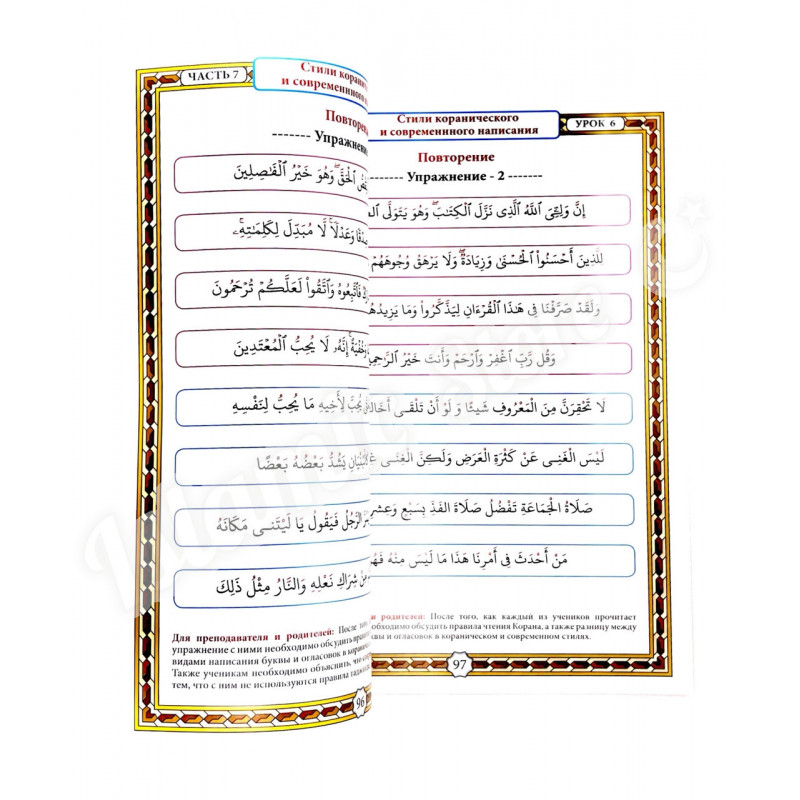 ЧАСТЬ 7
Стили кораническ
и современнного
Повторени
------- Упражнени
ٱلْحَقَّ ۖ وَهُوَ خَيْرُ ٱلْفَٰصِلِينَ
وَعَدْلًا ۚ لَّا مُبَدِّلَ لِكَلِمَٰتِهِۦ ۚ
فَٱتَّبِعُوهُ وَٱتَّقُوا۟ لَعَلَّكُمْ تُرْحَمُونَ
وَخُفْيَةً ۚ إِنَّهُۥ لَا يُحِبُّ ٱلْمُعْتَدِينَ
يُحِبَّ لِأَخِيهِ مَا يُحِبُّ لِنَفْسِهِ
يَشُدُّ بَعْضُهُ بَعْضًا
الرَّجُلِ فَيَقُولُ يَا لَيْتَنِي مَكَانَهُ
شِرَاكِ نَعْلِهِ وَالنَّارُ مِثْلُ ذَلِكَ
Для преподавателя и родителей: После того
упражнение с ними необходимо обсудить правил
видами написания буквы и огласовок в коранич
Также ученикам необходимо объяснить, что
тем, что с ним не используются правила тадж
96
Стили коранического
и современнного написания
УРОК 6
Повторение
-------- Упражнение - 2 -------
إِنَّ وَلِـِّۧىَ ٱللَّهُ ٱلَّذِى نَزَّلَ ٱلْكِتَٰبَ ۖ وَهُوَ يَتَوَلَّى
لِّلَّذِينَ أَحْسَنُوا۟ ٱلْحُسْنَىٰ وَزِيَادَةٌ ۖ وَلَا يَرْهَقُ وُجُوهَهُمْ
وَلَقَدْ صَرَّفْنَا فِى هَٰذَا ٱلْقُرْءَانِ لِيَذَّكَّرُوا۟ وَمَا يَزِيدُهُمْ
وَقُل رَّبِّ ٱغْفِرْ وَٱرْحَمْ وَأَنتَ خَيْرُ ٱلرَّٰحِمِ
لَا تَحْقِرَنَّ مِنَ الْمَعْرُوفِ شَيْئًا وَ لَوْ أَنْ تَلْقَى أَخَا
لَيْسَ الْغِنَى عَنْ كَثْرَةِ الْعَرَضِ وَلَكِنَّ الْغِنَى
صَلَاةُ الْجَمَاعَةِ تَفْضُلُ صَلَاةَ الْفَذِّ بِسَبْعٍ وَعِشْرِ
مَنْ أَحْدَثَ فِي أَمْرِنَا هَذَا مَا لَيْسَ مِنْهُ فَهُوَ
и родителей: После того, как каждый из учеников прочитает
необходимо обсудить правила чтения Корана, а также разницу между
буквы и огласовок в кораническом и современном стилях.
97